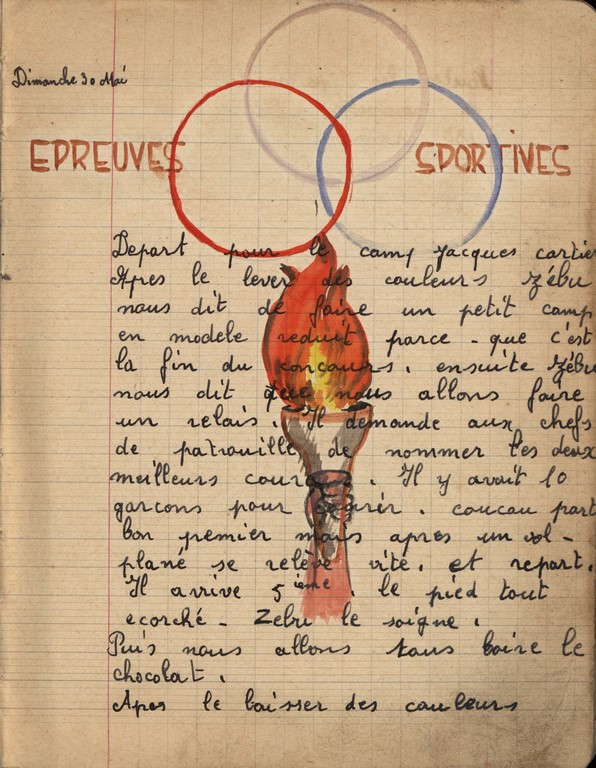 Dimanche 30 Mai
EPREUVES SPORTIVES
Depart pour le camp Jacques cartier
Apres le lever des couleurs zébu
nous dit de faire un petit camp
en modele reduit parce - que c'est
la fin du concours. ensuite zébu
nous dit que nous allons faire
un relais. Il demande aux chefs
de patrouille de nommer les deux
meilleurs . Il y avait 10
garcons pour . coucou part
bon premier mais apres un vol -
plané se relève vite. et repart.
Il arrive 5ieme. le pied tout
ecorché - Zebu le soigne.
Puis nous allons tous boire le
chocolat.
Apes le baisser des couleurs